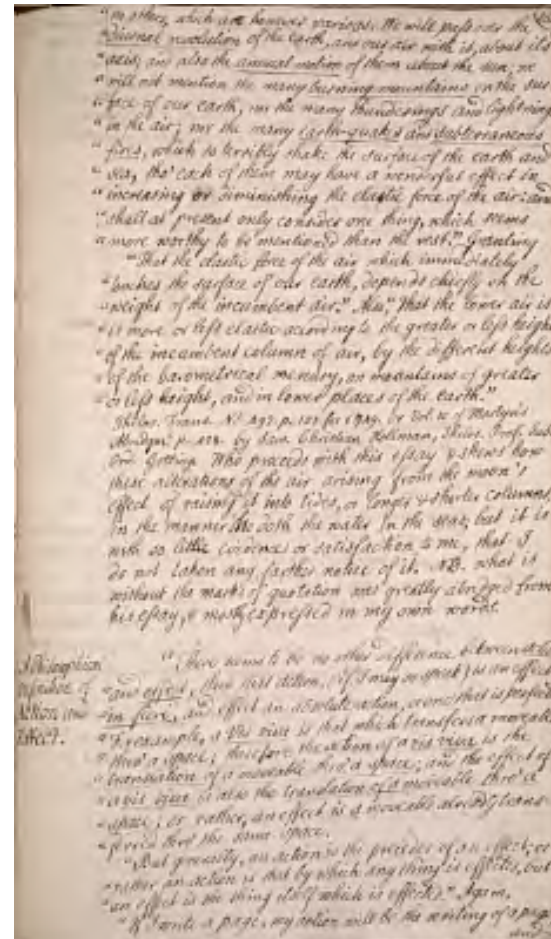 "in others, which are however various. We will pass over the
"diurnal revolution of the earth, and our air with it, about its
"axis; and also the annual motion of them about the sun; we
"will not mention the many burning mountains on the sur
"face of our earth, nor the many thunderings and lightnings
"in the air; nor the many earth-quakes and subterraneous
"fires, which so terribly shake the surface of the earth and
"sea, tho' each of them may have a wonderful effect in
"increasing or diminishing the elastic force of the air: and
"shall at present only consider one thing, which seems
"more worthy to be mentioned than the rest." Granting
"That the elastic force of the air which immediately
"touches the surface of our earth, depends chiefly on the
"weight of the incumbent air." Also, "That the lower air is
"is more or less elastic according to the greater or less height
"of the incumbent column of air, by the different heights
"of the barometrical mercury, on mountains of greater
"or less height, and in lower places of the earth."
Philos. Trans. No. 492. p. for 1749. Or Vol. 10 of Martyn's
Abridgmt. p. by Sam. Christian Holman, Philos. Prof. Pub.
Ord. Gotting. Who proceeds with this essay & shews how
these alterations of the air arising from the moon's
effect of raising it into tides, or longer & shorter columns,
in the manner doth the water in the seas; but it is
with so little evidence or satisfaction to me, that I
do not taken any farther notice of it. NB. what is
without the marks of quotation was greatly abridged from
his essay, & mostly expressed in my own words.
A Philosophical
definition of
Action and
Effect.
"There seems to be no other difference between action
"and effect, than that action, (if I may so speak) is an effect
"in fieri, and effect an absolute action, or one that is perfect
"For example, a vis viva is that which transfers a moveable
"thro' a space; therefore the action of a vis viva is the
"translation of a moveable thro' a space; and the effect of
"a vis viva is also the translation of a moveable thro' a
"space; or rather, an effect is a moveable already trans
"ferred thro' the same space.
"But generally, an action is the of an effect; or
"rather an action is that by which any thing is effected, but
"an effect is the thing itself which is effected." Again,
"If I write a page, my action will be the writing of a page